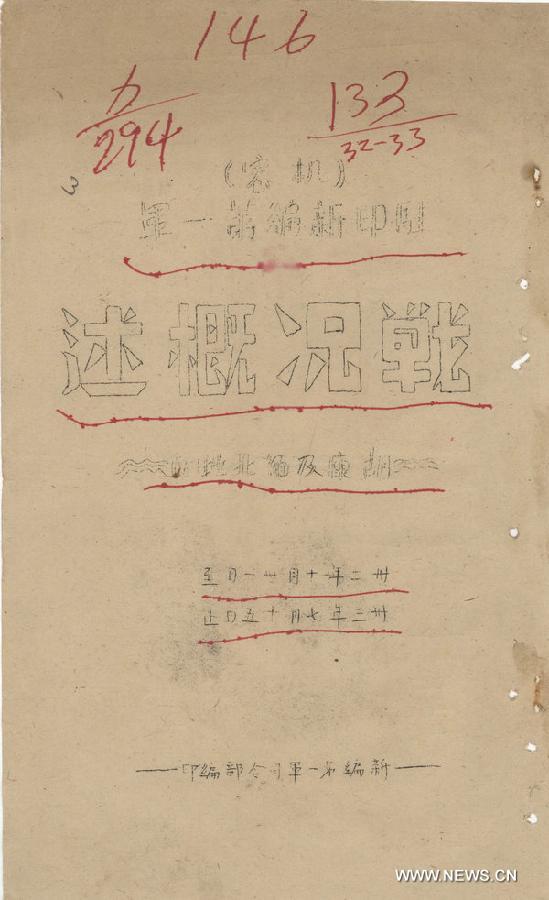 146
294
133
32-33
3
(机密)
駐印新編第一軍
戰况概述
胡康及緬北地
卅二年十月廿一日至
卅三年七月十五日止
新編第一軍司令部編印
WWW.NEWS.CN